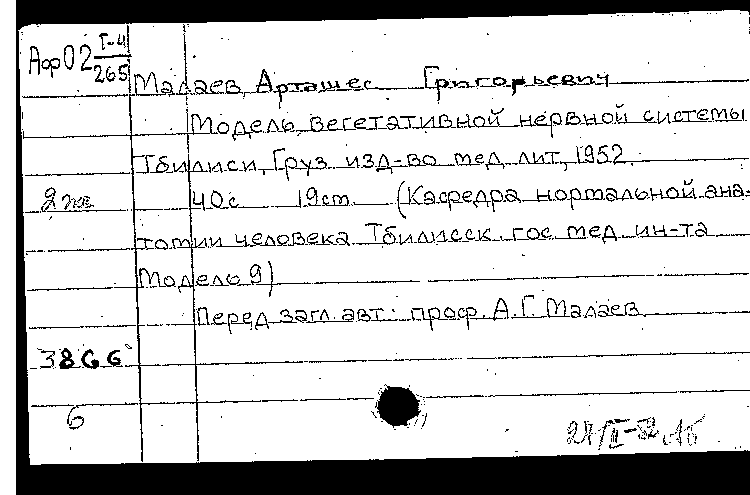 Афо02 I-4/265
Малаев, Арташес Григорьевич
Модель вегетативной нервной системы
Тбилиси, Груз. изд-во мед. лит., 1952.
2 экз 40 с. 19 см. (Кафедра нормальной ана-
томии человека Тбилисск. гос. мед. ин-та
Модель 9)
Перед загл. авт.: проф. А. Г. Малаев.
3866
6